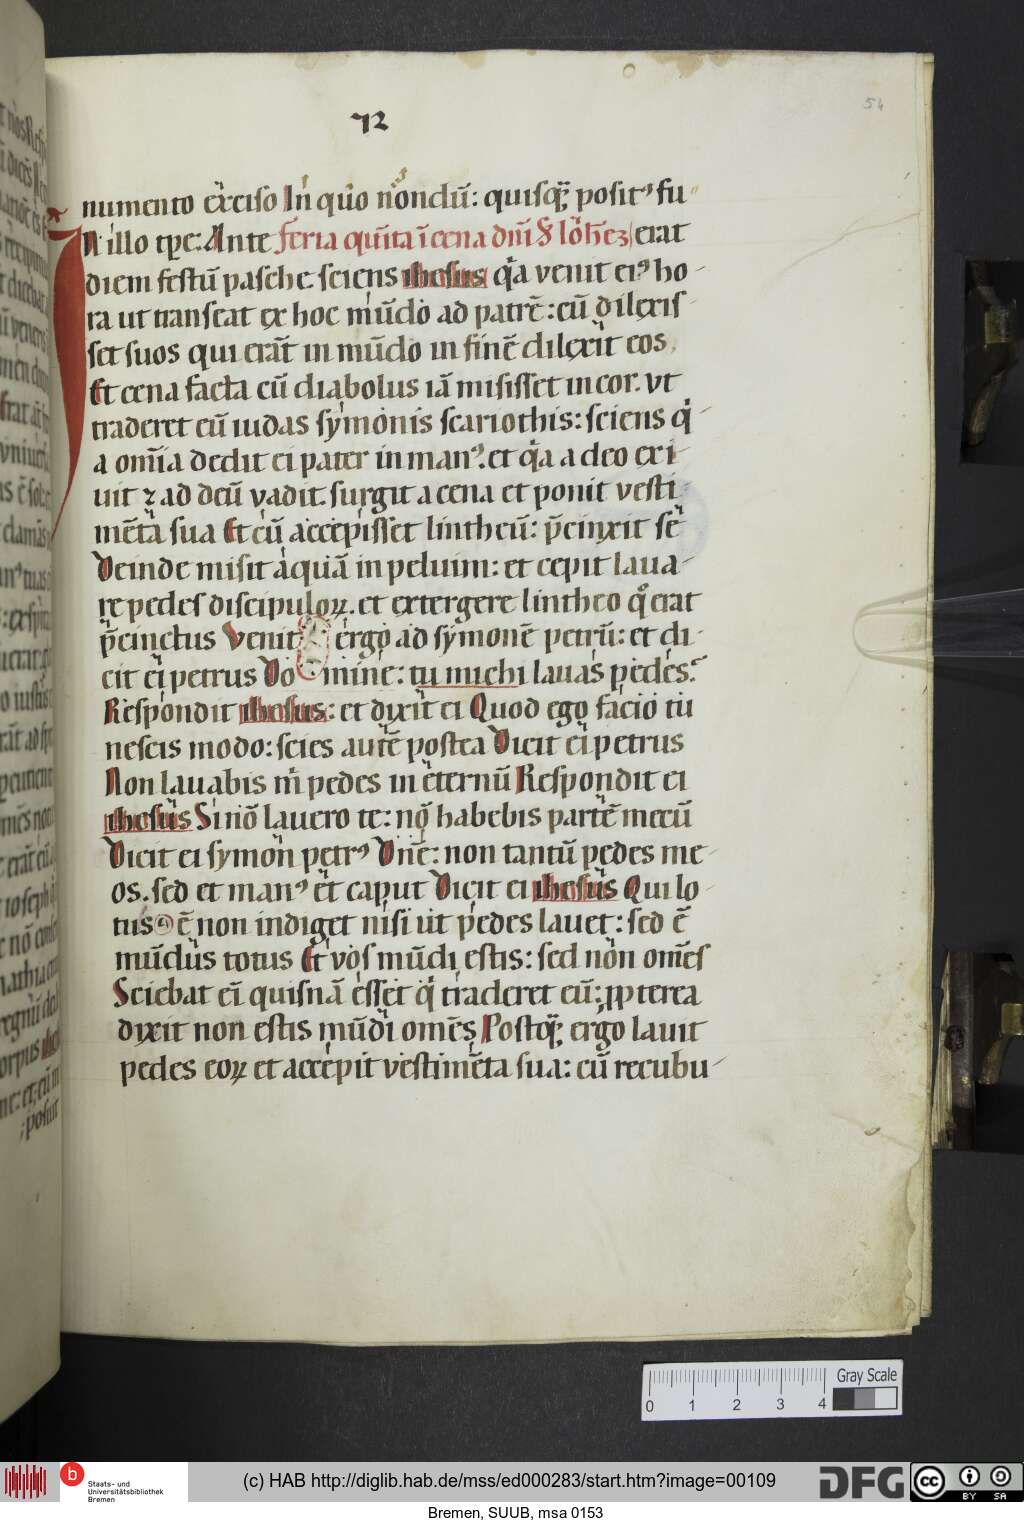 72
54
numento exciso In quo nondū: quisqꝫ positꝰ fu
N illo tꝑe: Ante feria qui̅ta i̅ cena dn̅i S Ioh̅ez erat
diem festū pasche sciens ihesus qͥa venit eiꝰ ho-
ra ut transeat ex hoc mūdo ad patrē: cū dilexis
set suos qui erāt in mūdo in finē dilexit eos.
Et cena facta cū diabolus iā misisset in cor. vt
traderet eū iudas symonis scariothis: sciens qͥ-
a om̅ia dedit ei pater in manꝰ. et qͥa a deo exi-
uit ⁊ ad deū vadit. surgit a cena et ponit vesti
mēta sua Et cū accepisset lintheū: p̄cinxit sē
Deinde misit aquā in peluim: et cepit laua-
re pedes discipuloꝝ. et extergere lintheo qͦ erat
p̄cinctus Venit ergo ad symonē petrū: et di-
cit ei petrus Do mine: tu michi lauas pedes?
Respondit ihesus: et dixit ei Quod ego facio tu
nescis modo: scies autē postea Dicit ei petrus
Non lauabis m̍ pedes in eternū Respondit ei
ihesus Si nō lauero te: nō habebis partē mecū
Dicit ei symon petrꝰ Dn̅e: non tantū pedes me-
os. sed et manꝰ et caput Dicit ei ihesus Qui lo-
tus ē non indiget nisi ut pedes lauet: sed ē
mūdus totus Et vos mūdi estis: sed non om̅es
Sciebat ei̅ quisnā esset qͥ traderet eū: ꝓpterea
dixit non estis mūdi omēs Postqꝫ ergo lauit
pedes eoꝝ et accepit vestimēta sua: cū recubu-
Gray Scale
0 1 2 3 4
Staats- und
Universitätsbibliothek
Bremen
(c) HAB http://diglib.hab.de/mss/ed000283/start.htm?image=00109
DFG
cc BY SA
Bremen, SUUB, msa 0153